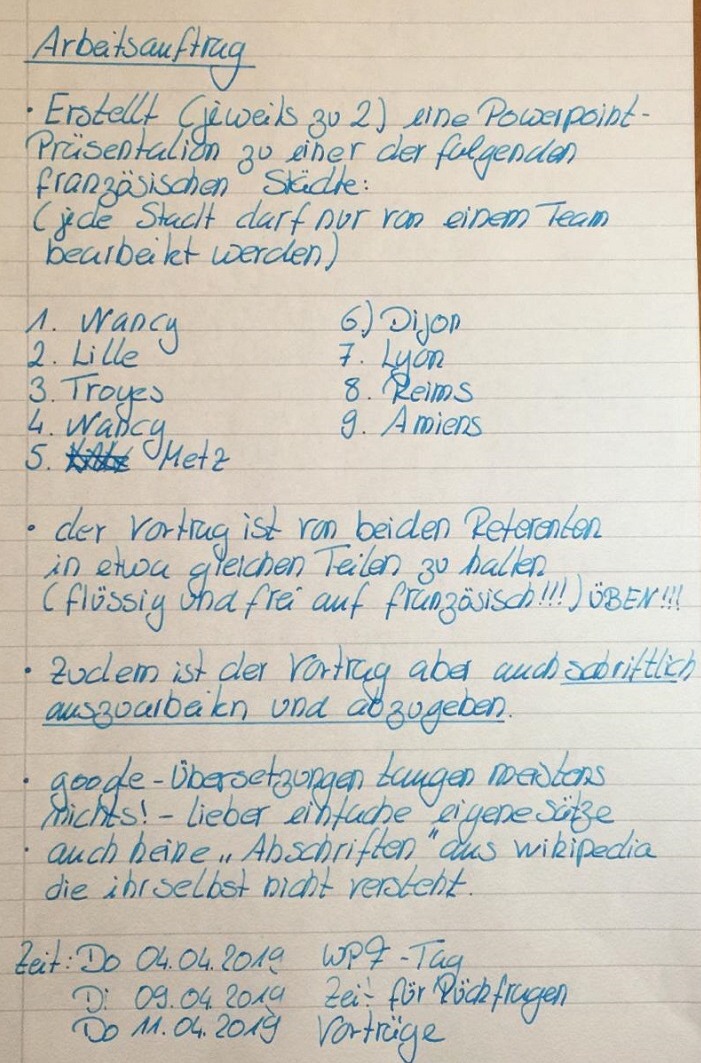 Arbeitsauftrag
• Erstellt (jeweils zu 2) eine Powerpoint-
Präsentation zu einer der folgenden
französischen Städte:
(jede Stadt darf nur von einem Team
bearbeitet werden)
1. Nancy
2. Lille
3. Troyes
4. Nancy
5. Metz
6) Dijon
7. Lyon
8. Reims
9. Amiens
• der Vortrag ist von beiden Referenten
in etwa gleichen Teilen zu halten
(flüssig und frei auf französisch!!!) ÜBEN!!!
• Zudem ist der Vortrag aber auch schriftlich
auszuarbeiten und abzugeben.
• google-Übersetzungen taugen meistens
nichts! - lieber einfache eigene Sätze
• auch keine „Abschriften" aus wikipedia
die ihr selbst nicht versteht.
Zeit: Do 04.04.2019 WPF-Tag
Di 09.04.2019 Zeit für Rückfragen
Do 11.04.2019 Vorträge